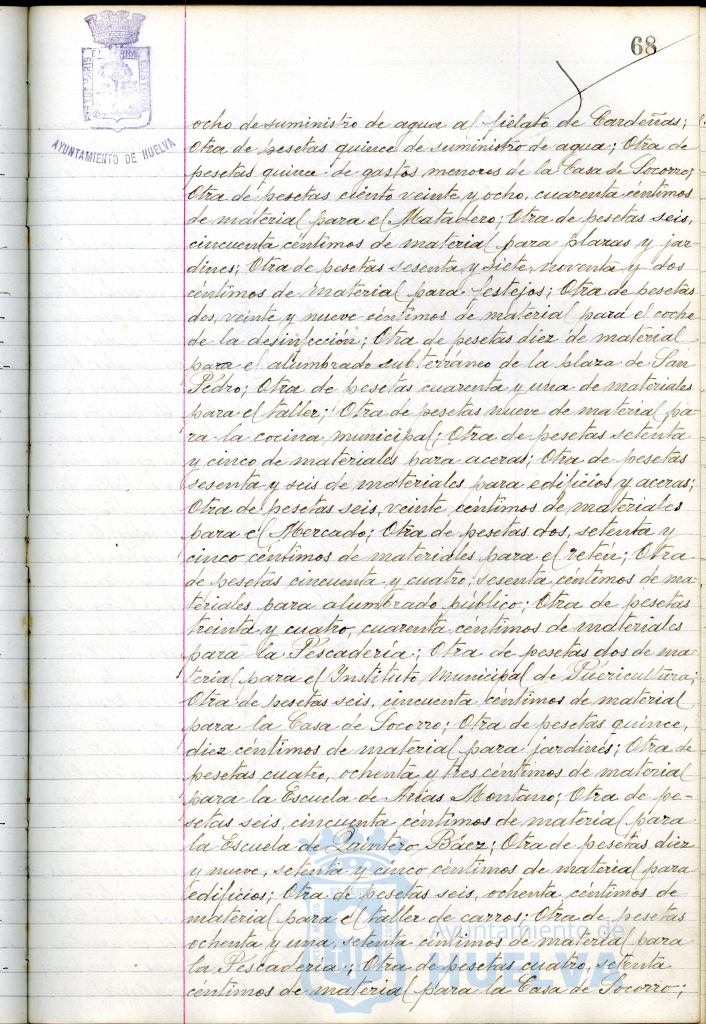 68
AYUNTAMIENTO DE HUELVA
ocho de suministro de agua al fielato de Cardeñas;
Otra de pesetas quince de suministro de agua; Otra de
pesetas quince de gastos menores de la Casa de Socorro;
Otra de pesetas ciento veinte y ocho, cuarenta céntimos
de material para el Matadero; Otra de pesetas seis,
cincuenta céntimos de material para plazas y jar-
dines; Otra de pesetas sesenta y siete, noventa y dos
céntimos de material para festejos; Otra de pesetas
dos, veinte y nueve céntimos de material para el coche
de la desinfección; Otra de pesetas diez de material
para el alumbrado subterráneo de la plaza de San
Pedro; Otra de pesetas cuarenta y una de materiales
para el taller; Otra de pesetas nueve de material pa-
ra la cocina municipal; Otra de pesetas setenta
y cinco de materiales para aceras; Otra de pesetas
sesenta y seis de materiales para edificios y aceras;
Otra de pesetas seis, veinte céntimos de materiales
para el Mercado; Otra de pesetas dos, setenta y
cinco céntimos de materiales para el retén; Otra
de pesetas cincuenta y cuatro, sesenta céntimos de ma-
teriales para alumbrado público; Otra de pesetas
treinta y cuatro, cuarenta céntimos de materiales
para la Pescadería; Otra de pesetas dos de ma-
terial para el Instituto Municipal de Puericultura;
Otra de pesetas seis, cincuenta céntimos de material
para la Casa de Socorro; Otra de pesetas quince,
diez céntimos de material para jardines; Otra de
pesetas cuatro, ochenta y tres céntimos de material
para la Escuela de Arias Montano; Otra de pe-
setas seis, cincuenta céntimos de material para
la Escuela de Quintero Báez; Otra de pesetas diez
y nueve, setenta y cinco céntimos de material para
edificios; Otra de pesetas seis, ochenta céntimos de
material para el taller de carros; Otra de pesetas
ochenta y una, setenta céntimos de material para
la Pescadería; Otra de pesetas cuatro, setenta
céntimos de material para la Casa de Socorro;
Ayuntamiento de
HUELVA